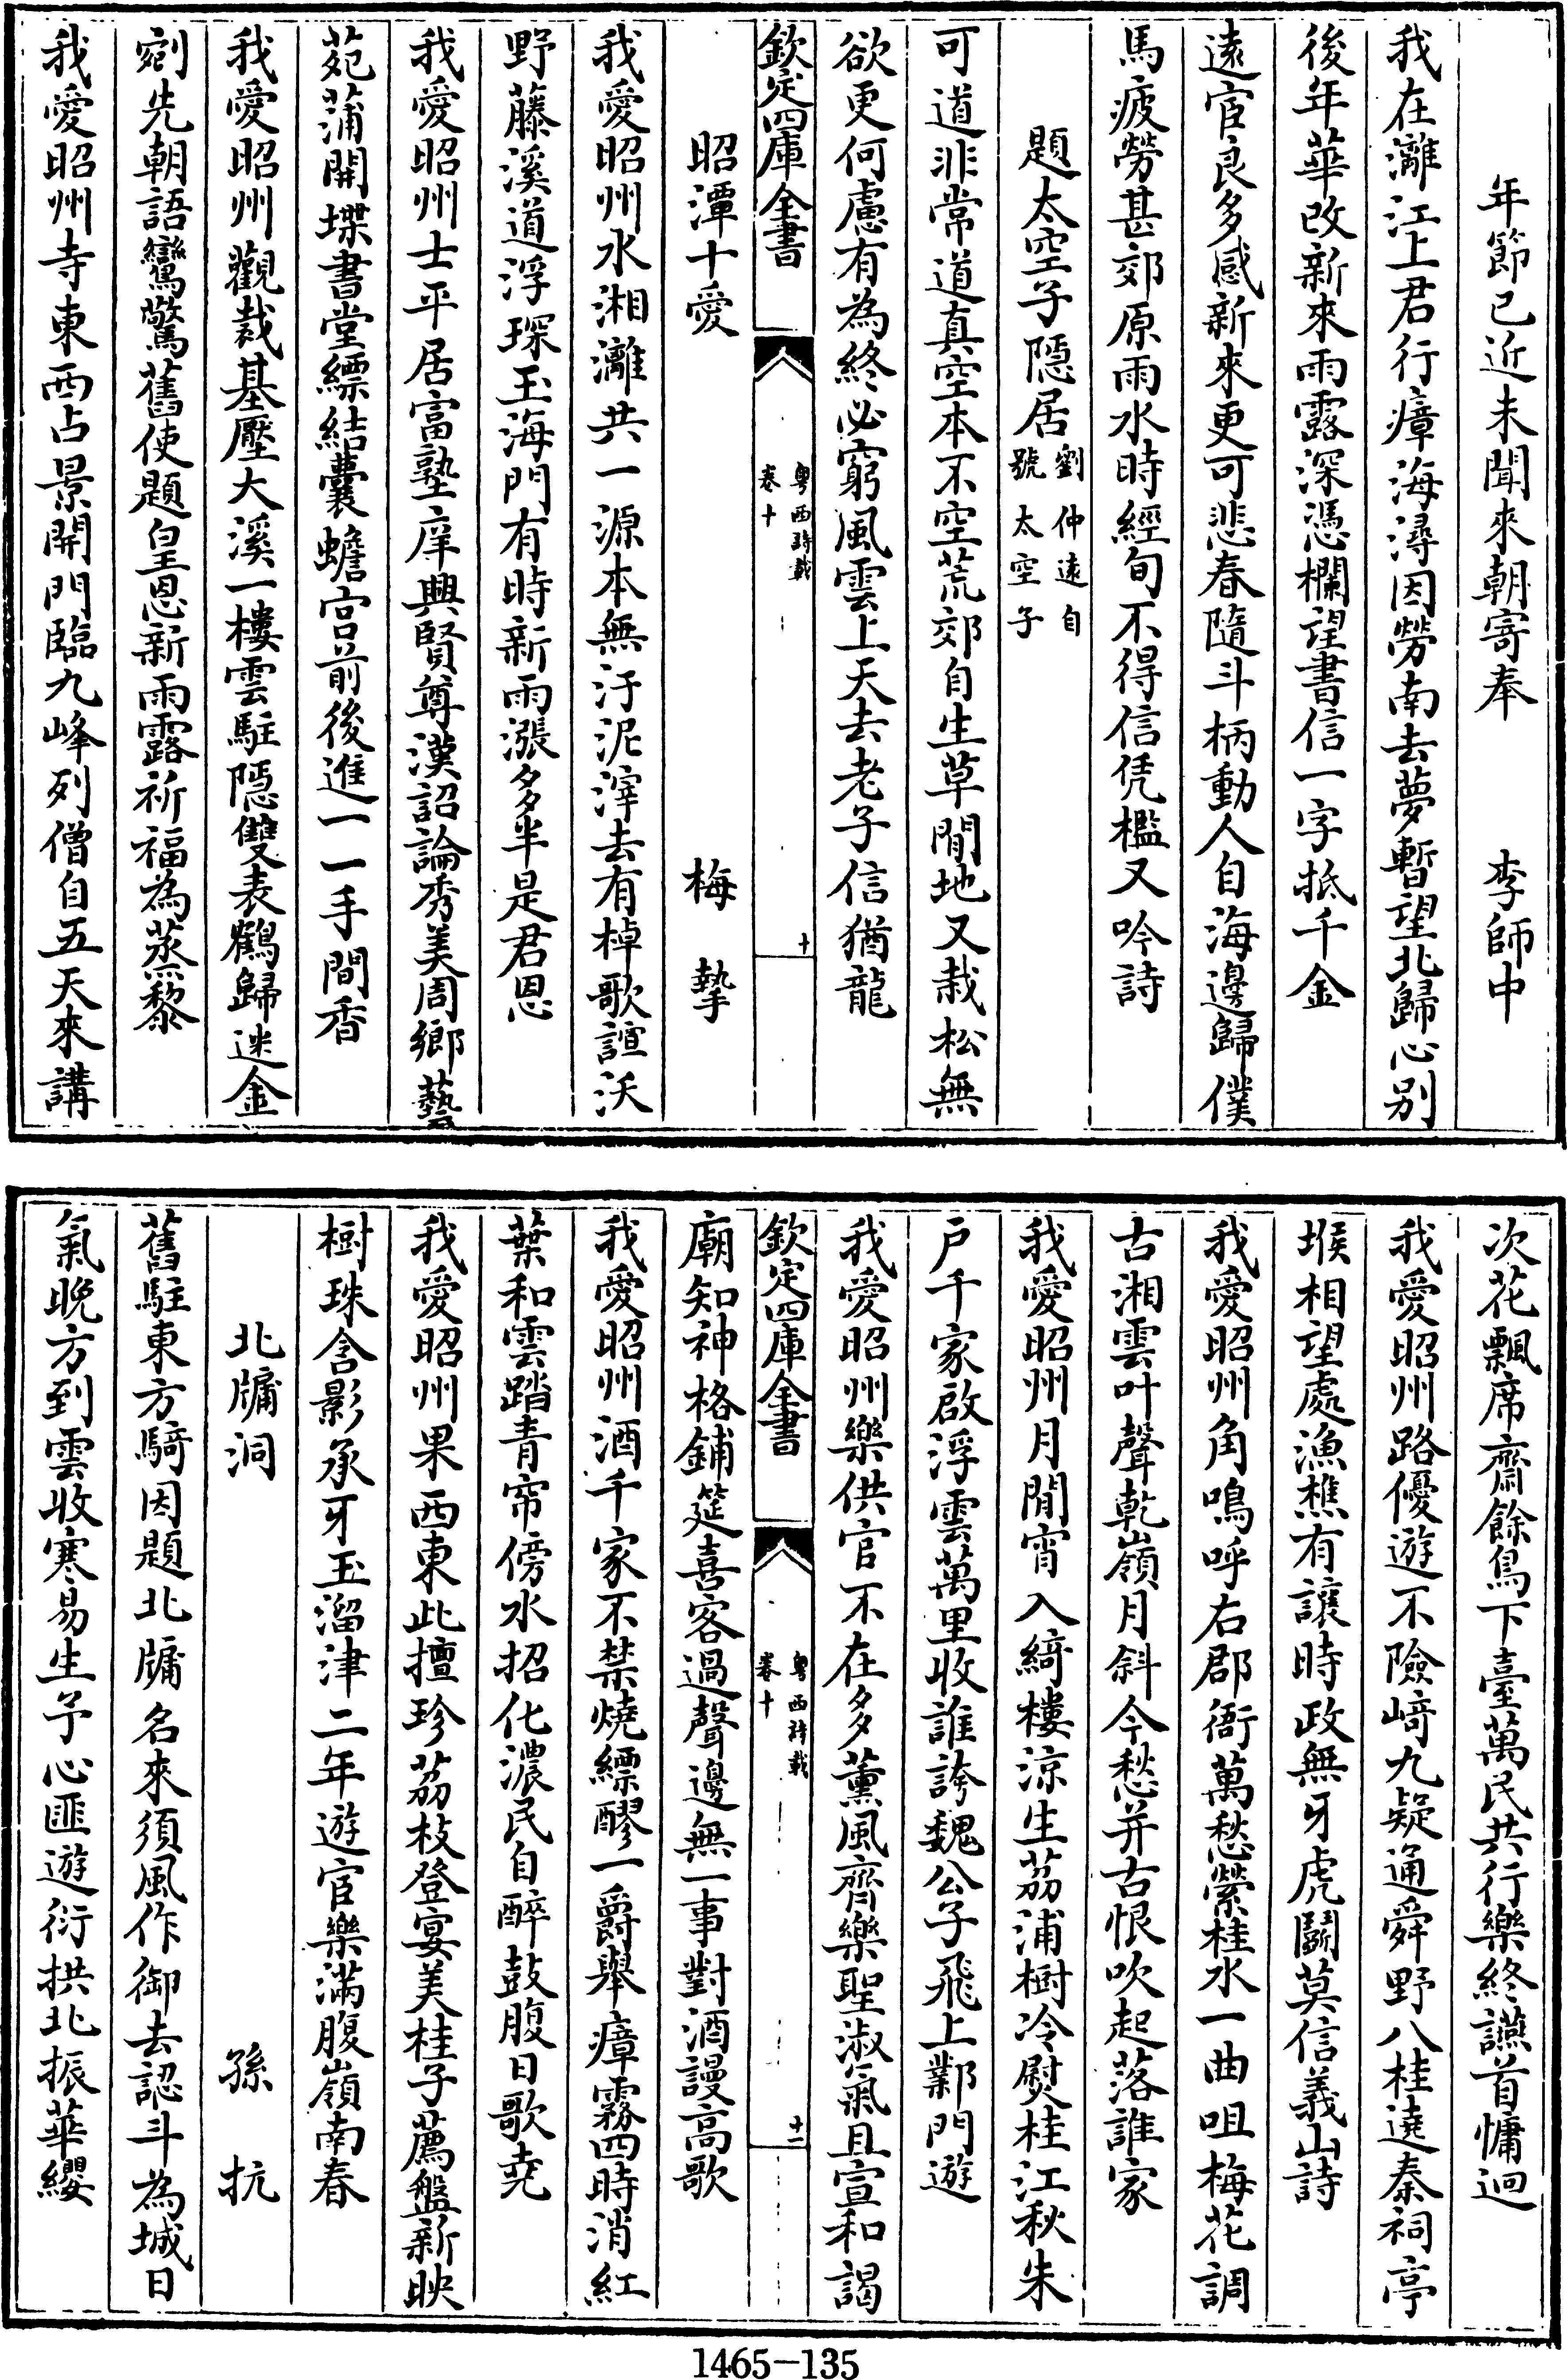 年節已近未聞來朝寄奉　李師中
我在灕江上君行瘴海潯因勞南去夢暫望北歸心别
後年華改新來雨露深憑欄望書信一字抵千金
逺宦良多感新來更可悲春隨斗柄動人自海邊歸僕
馬疲勞甚郊原雨水時經旬不得信凭檻又吟詩
題太空子隠居劉仲逺自號太空子
可道非常道真空本不空荒郊自生草閒地又栽松無
欲更何慮有為終必窮風雲上天去老子信猶龍
欽定四庫全書　粤西詩載　卷十　十
昭潭十愛　梅摯
我愛昭州水湘灕共一源本無汙泥滓去有棹歌諠沃
野藤溪道浮琛玉海門有時新雨漲多半是君恩
我愛昭州士平居富塾庠興賢尊漢詔論秀美周鄉藝
苑蒲開堞書堂縹結囊蟾宫前後進一一手間香
我愛昭州觀裁基壓大溪一樓雲駐隠雙表鶴歸迷金
劄先朝語鸞驚舊使題皇恩新雨露祈福為蒸黎
我愛昭州寺東西占景開門臨九峰列僧自五天來講
次花飄席齋餘鳥下臺萬民共行樂終讌首慵迴
我愛昭州路優遊不險﨑九疑通舜野八桂遶秦祠亭
堠相望處漁樵有讓時政無牙虎鬭莫信義山詩
我愛昭州角鳴呼右郡衙萬愁縈桂水一曲咀梅花調
古湘雲叶聲乾嶺月斜今愁并古恨吹起落誰家
我愛昭州月閒宵入綺樓涼生荔浦樹冷熨桂江秋朱
户千家啟浮雲萬里收誰誇魏公子飛上鄴門遊
我愛昭州樂供官不在多薰風齊樂聖淑氣且宣和謁
欽定四庫全書　粤西詩載　卷十　十一
廟知神格鋪筵喜客過聲邊無一事對酒謾高歌
我愛昭州酒千家不禁燒縹醪一爵舉瘴霧四時消紅
葉和雲踏青帘傍水招化濃民自醉鼓腹日歌堯
我愛昭州果西東此擅珍荔枝登宴美桂子薦盤新映
樹珠含影承牙玉溜津二年遊宦樂滿腹嶺南春
北牖洞　孫抗
舊駐東方騎因題北牖名來須風作御去認斗為城日
氣晚方到雲收寒易生予心匪遊衍拱北振華纓
1465-135